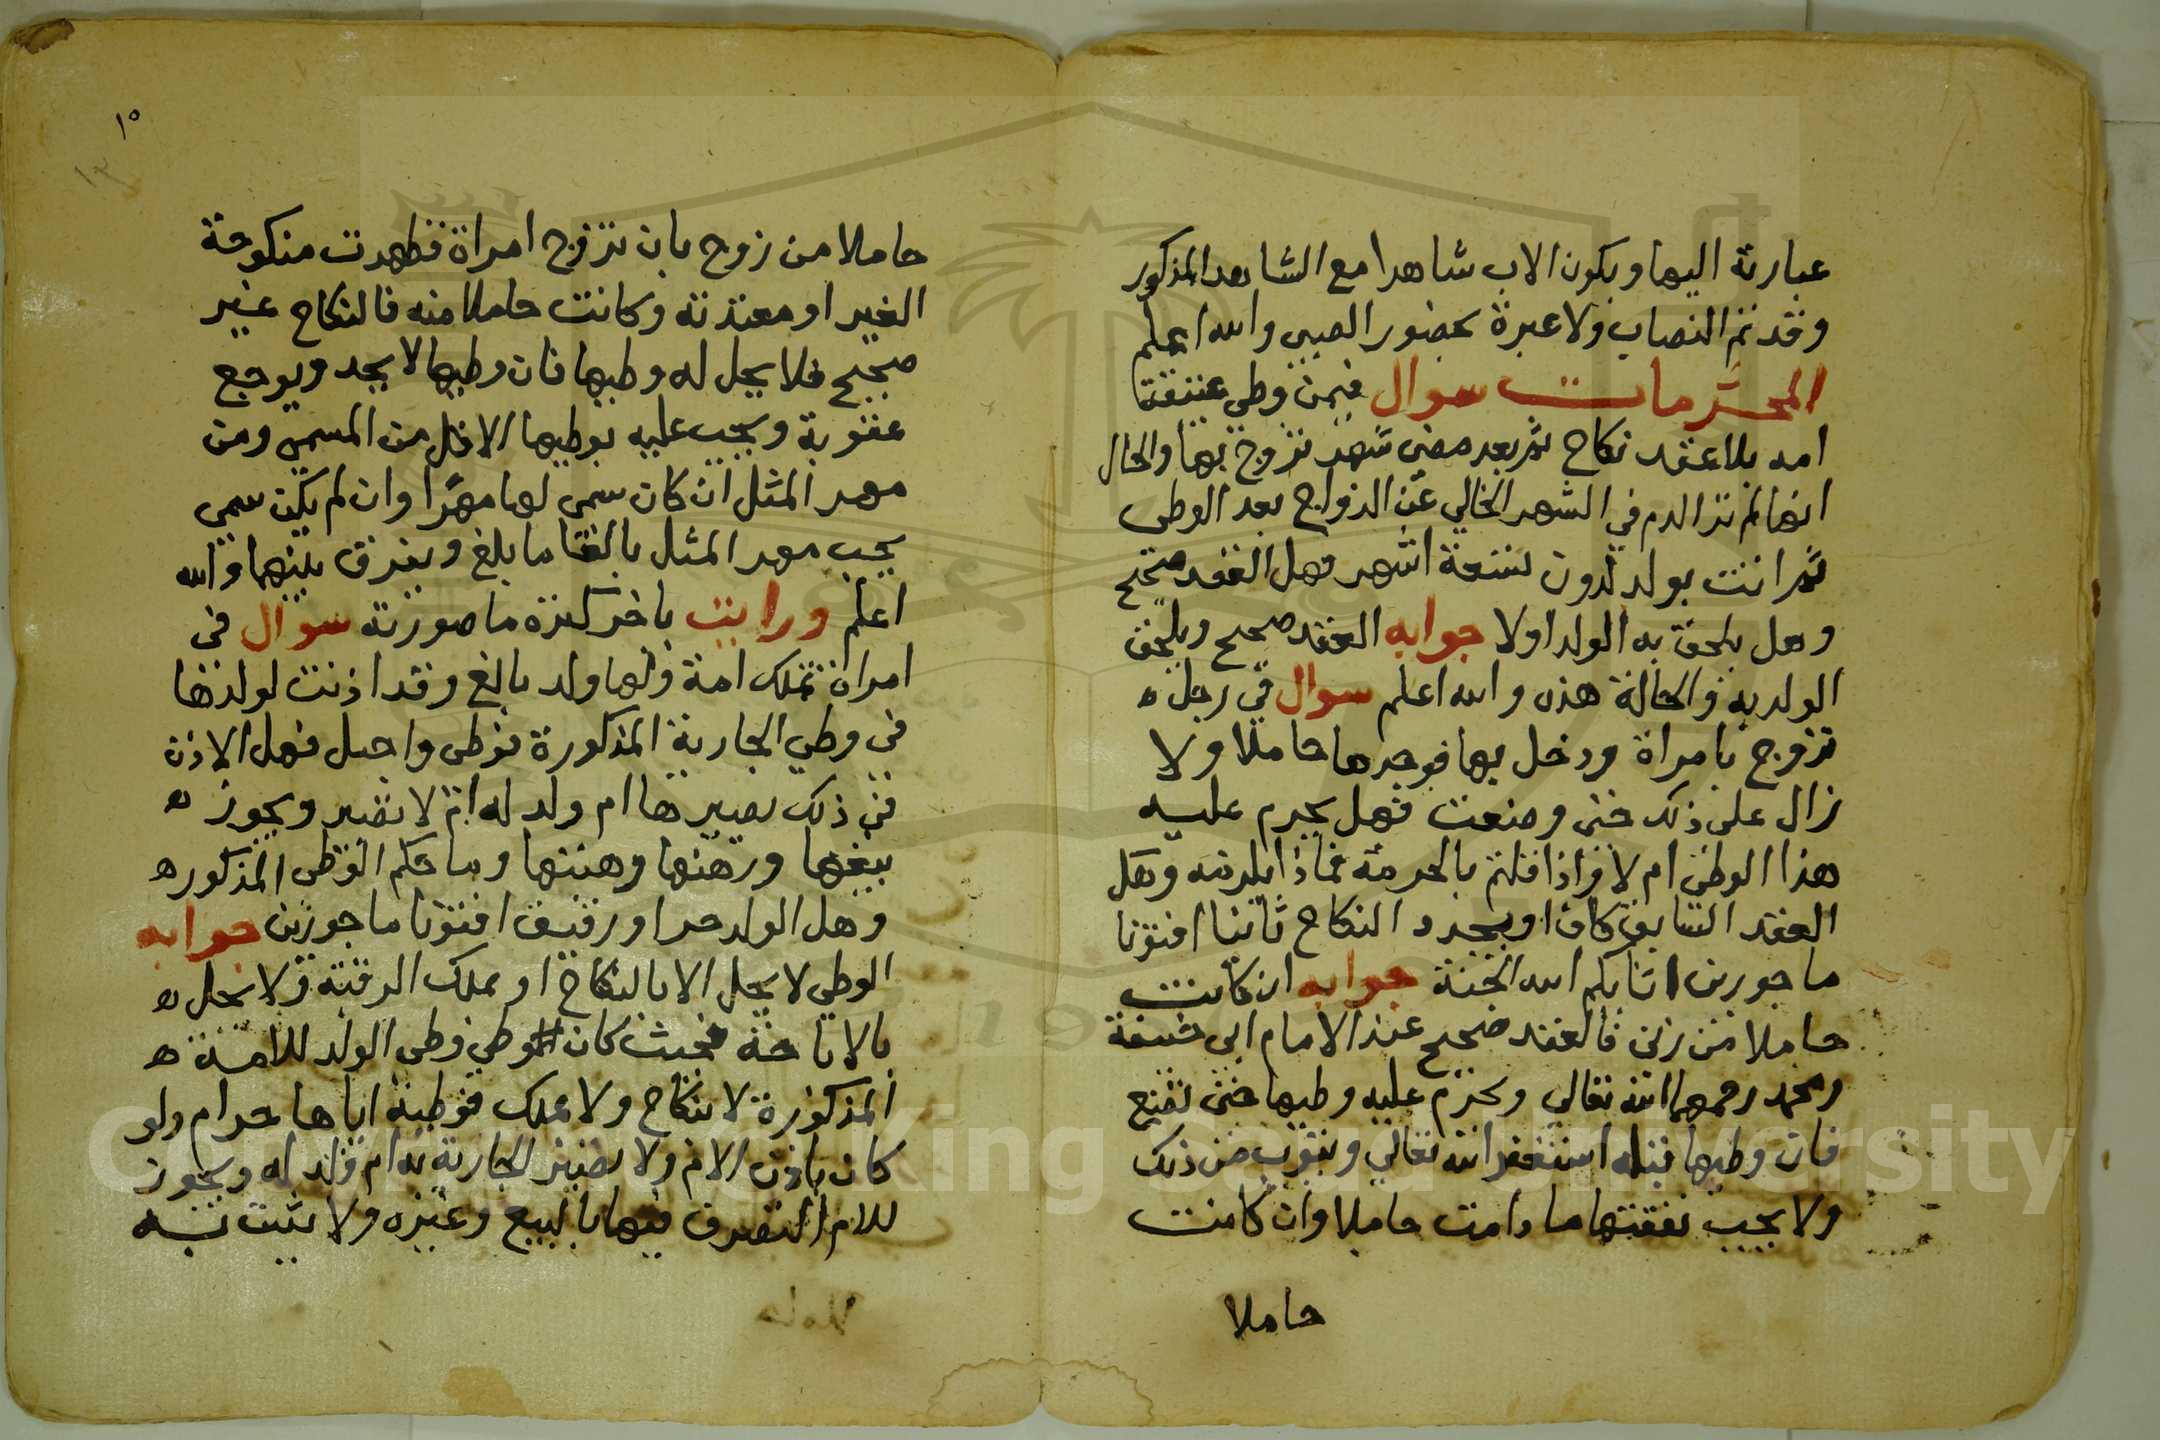 عبارته اليها ويكون الاب شاهدا مع الشاهد المذكور
وقد تم النصاب ولا عبرة بحضور الصبي والله اعلم
المحرمات سوال فيمن وطي عتيقة
امه بلا عقد نكاح ثم بعد مضي شهر تزوج بها والحال
انها لم تر الدم في الشهر الخالي عن الزواج بعد الوطي
ثم اتت بولد لدون تسعة اشهر فهل العقد صحيح
وهل يلحق به الولد او لا جوابه العقد صحيح ويلحق
الولد به والحالة هذه والله اعلم سوال في رجل ه
تزوج بامراة ودخل بها فوجدها حاملا ولا
زال على ذلك حتى وضعت فهل يحرم عليه
هذا الوطي ام لا واذا قلتم بالحرمة فماذا يلزمه وهل
العقد السابق كاف او يجدد النكاح ثانيا افتونا
ماجورين اثابكم الله الجنة جوابه ان كانت
حاملا من زنى فالعقد صحيح عند الامام ابي حنيفة
ومحمد رحمهما الله تعالي ويحرم عليه وطيها حتى تضع
فان وطيها قبله استغفر الله تعالي ويتوب من ذلك
ولا يجب نفقتها ما دامت حاملا وان كانت
حاملا
١٥
١٣
حاملا من زوج بان تزوج امراة فظهرت منكوحة
الغير او معتدته وكانت حاملا منه فالنكاح غير
صحيح فلا يحل له وطيها فان وطيها لا يحد ويوجع
عقوبة ويجب عليه بوطيها الاقل من المسمى ومن
مهر المثل ان كان سمى لها مهرا وان لم يكن سمي
يجب مهر المثل بالغا ما بلغ ويفرق بينهما والله
اعلم ورايت باخر كنزه ما صورته سوال في
امراة تملك امة ولها ولد بالغ وقد اذنت لولدها
في وطي الجارية المذكورة فوطي واحبل فهل الاذن
في ذلك يصيرها ام ولد له ام لا تصير ويجوز ه
بيعها ورهنها وهبتها وما حكم الوطي المذكور ه
وهل الولد حر او رقيق افتونا ماجورين جوابه
الوطي لا يحل الا بالنكاح او بملك الرقبة ولا يحل ه
بالاباحة فحيث كان وطي وطي الولد للامة ه
المذكورة لا بنكاح ولا بملك فوطيه اياها حرام ولو
كان باذن الام ولا تصير الجارية به ام ولد له ويجوز
للام التصرف فيها بالبيع وغيره ولا يثبت نسبه